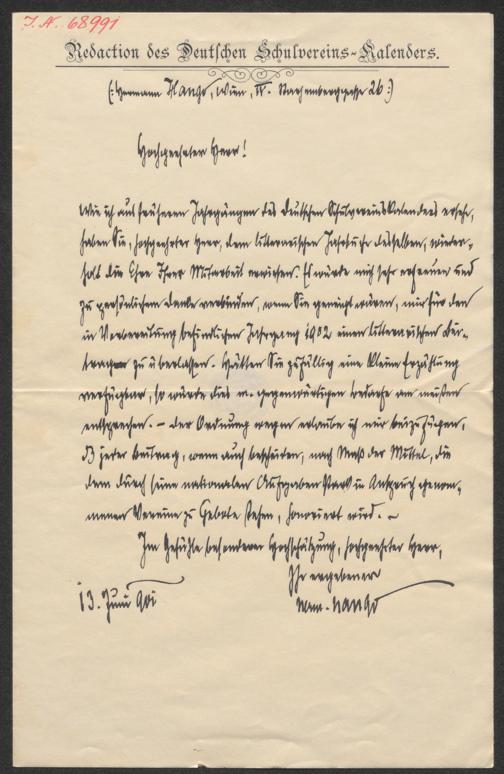 I. N. 68991
Redaction des Deutschen Schulvereins-Kalenders.
(: Hermann Hango, Wien, IV. Starhemberggasse 26 :)
Hochgeehrter Herr!
Wie ich aus früheren Jahrgängen des Deutschen Schulvereinskalenders ersehe,
haben Sie, hochgeehrter Herr, dem litterarischen Jahrbuche desselben, wieder-
holt die Ehre Ihrer Mitarbeit erwiesen. Es würde mich sehr erfreuen und
zu persönlichem Danke verbinden, wenn Sie geneigt wären, mir für den
in Vorbereitung befindlichen Jahrgang 1902 einen litterarischen Bei-
trag zu überlassen. Hätten Sie zufällig eine kleine Erzählung
verfügbar, so würde dies m. gegenwärtigen Bedarfe am meisten
entsprechen. – Der Ordnung wegen erlaube ich mir beizufügen,
dß jeder Beitrag, wenn auch bescheiden, nach Maß der Mittel, die
dem durch seine nationalen Aufgaben stark in Anspruch genom-
menen Vereine zu Gebote stehen, honoriert wird. –
Im Gefühle besonderer Hochschätzung, hochgeehrter Herr,
Ihr ergebener
13. Juni 901
Herm. Hango